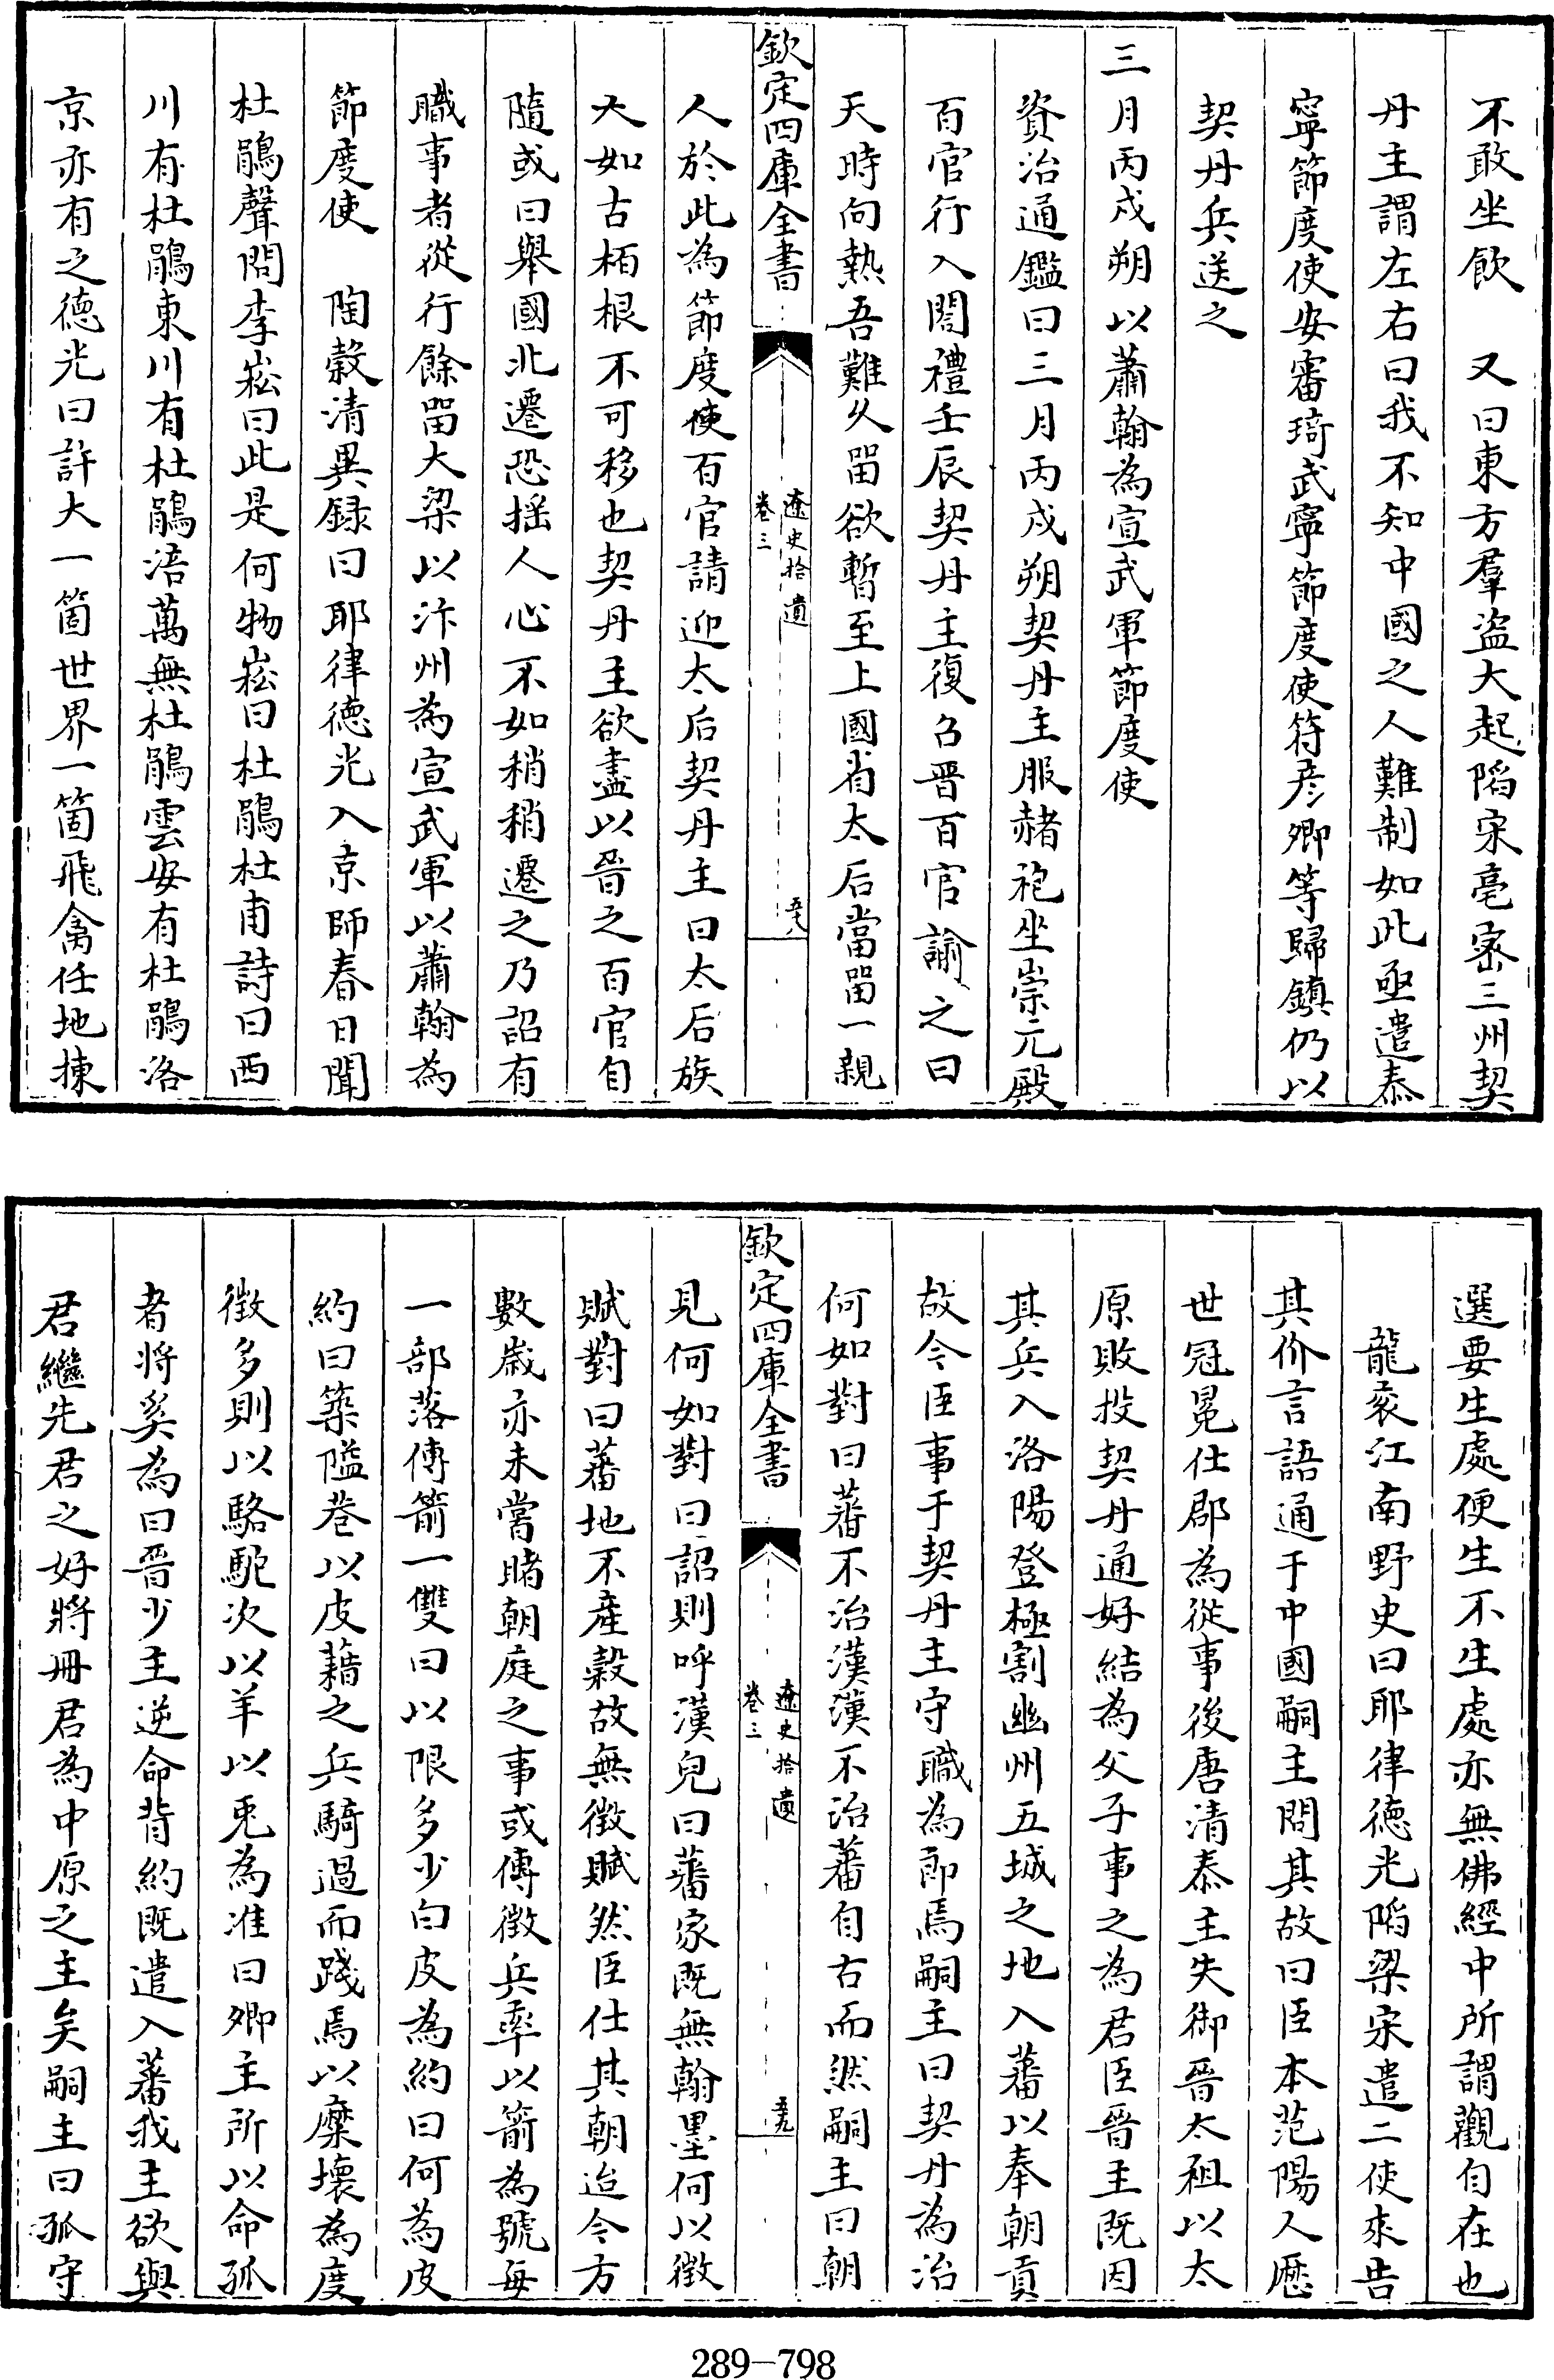 不敢坐飲　又曰東方羣盜大起陷宋亳宻三州契
丹主謂左右曰我不知中國之人難制如此亟遣泰
寧節度使安審琦武寧節度使符彥卿等歸鎮仍以
契丹兵送之
三月丙戌朔以蕭翰為宣武軍節度使
資治通鑑曰三月丙戌朔契丹主服赭袍坐崇元殿
百官行入閤禮壬辰契丹主復召晋百官諭之曰
天時向熱吾難久畱欲暫至上國省太后當畱一親
欽定四庫全書
遼史拾遺
卷三
五十八
人於此為節度使百官請迎太后契丹主曰太后族
大如古栢根不可移也契丹主欲盡以晉之百官自
隨或曰舉國北遷恐揺人心不如稍稍遷之乃詔有
職事者從行餘畱大梁以汴州為宣武軍以蕭翰為
節度使　陶穀清異録曰耶律德光入京師春日聞
杜鵑聲問李崧曰此是何物崧曰杜鵑杜甫詩曰西
川有杜鵑東川有杜鵑涪萬無杜鵑雲安有杜鵑洛
京亦有之德光曰許大一箇世界一箇飛禽任地揀
選要生處便生不生處亦無佛經中所謂觀自在也
龍衮江南野史曰耶律德光陷梁宋遣二使來告
其价言語通于中國嗣主問其故曰臣本范陽人歴
世冠冕仕郡為從事後唐清泰主失御晉太祖以太
原敗投契丹通好結為父子事之為君臣晉主既因
其兵入洛陽登極割幽州五城之地入蕃以奉朝貢
故令臣事于契丹主守職為郎焉嗣主曰契丹為治
何如對曰蕃不治漢漢不治蕃自古而然嗣主曰朝
欽定四庫全書
遼史拾遺
卷三
五十九
見何如對曰詔則呼漢兒曰蕃家既無翰墨何以徵
賦對曰蕃地不産穀故無徵賦然臣仕其朝迨今方
數歲亦未嘗睹朝庭之事或傳徵兵率以箭為號每
一部落傳箭一雙曰以限多少白皮為約曰何為皮
約曰築隘巷以皮藉之兵騎過而踐焉以糜壞為度
徵多則以駱駝次以羊以兎為准曰卿主所以命孤
者將奚為曰晋少主逆命背約既遣入蕃我主欲與
君繼先君之好將冊君為中原之主矣嗣主曰孤守
289-798